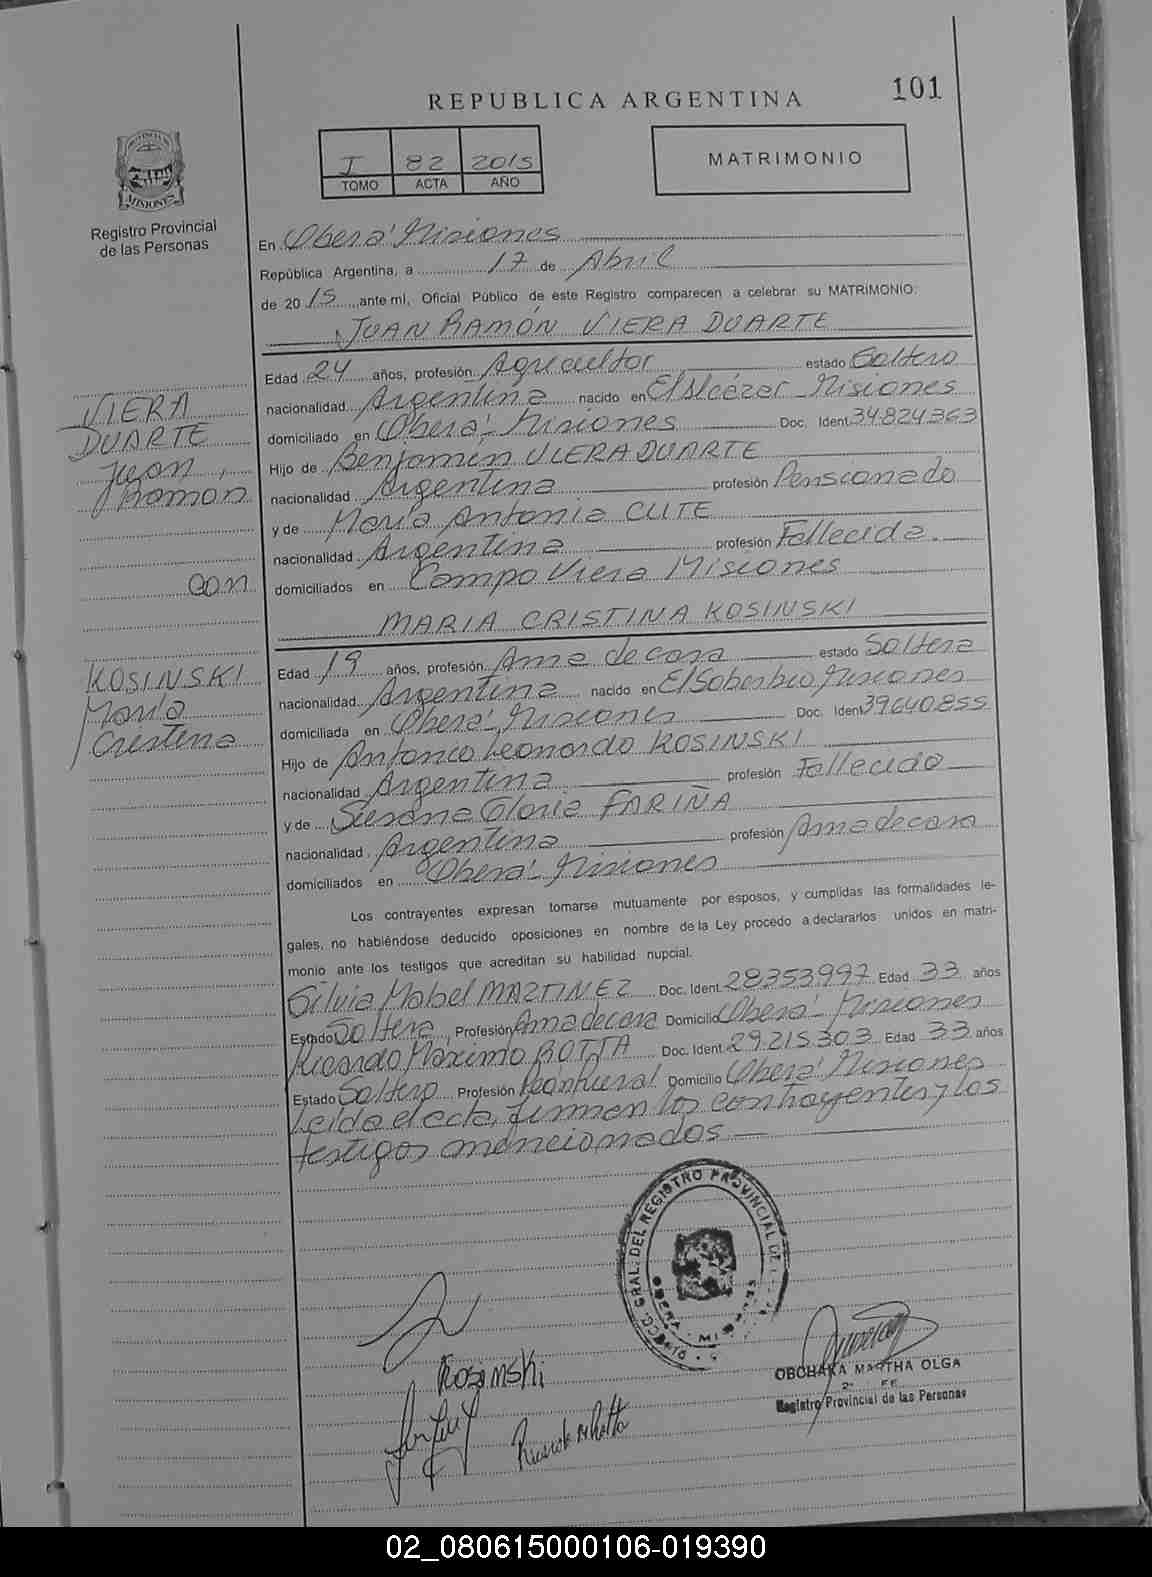 REPUBLICA ARGENTINA
101
I 82 2015
TOMO ACTA AÑO
MATRIMONIO
PROVINCIA DE
MISIONES
Registro Provincial
de las Personas
En Oberá Misiones
República Argentina, a 17 de Abril
de 2015 ante mí, Oficial Público de este Registro comparecen a celebrar su MATRIMONIO:
JUAN RAMÓN VIERA DUARTE
Edad 24 años, profesión Agricultor estado Soltero
nacionalidad Argentina nacido en El Alcázar Misiones
domiciliado en Oberá - Misiones Doc. Ident 34824363
Hijo de Benjamín VIERA DUARTE
nacionalidad Argentina profesión Pensionado
y de María Antonia CLITE
nacionalidad Argentina profesión Fallecida.
domiciliados en Campo Viera Misiones
MARIA CRISTINA KOSINSKI
Edad 19 años, profesión Ama de casa estado Soltera
nacionalidad Argentina nacido en El Soberbio Misiones
domiciliada en Oberá - Misiones Doc. Ident 39640855
Hijo de Antonio Leonardo KOSINSKI
nacionalidad Argentina profesión Fallecido
y de Susana Gloria FARIÑA
nacionalidad Argentina profesión Ama de casa
domiciliados en Oberá - Misiones
VIERA
DUARTE
Juan
Ramon
con
KOSINSKI
María
Cristina
Los contrayentes expresan tomarse mutuamente por esposos, y cumplidas las formalidades le-
gales, no habiéndose deducido oposiciones en nombre de la Ley procedo a declararlos unidos en matri-
monio ante los testigos que acreditan su habilidad nupcial.
Silvia Mabel MARTINEZ Doc. Ident. 28353997 Edad 33 años
Estado Soltera Profesión Ama de casa Domicilio Oberá - Misiones
Ricardo Máximo ROTTA Doc. Ident. 29.215.303 Edad 33 años
Estado Soltero Profesión Peon Rural Domicilio Oberá Misiones
Leída el acta, firman los contrayentes y los
testigos mencionados
DIRECC. GRAL. DEL REGISTRO PROVINCIAL DE
OBERA - MISIONES
Kosinski
Ricardo M Rotta
OBCHAKA MARTHA OLGA
Registro Provincial de las Personas
02_080615000106-019390